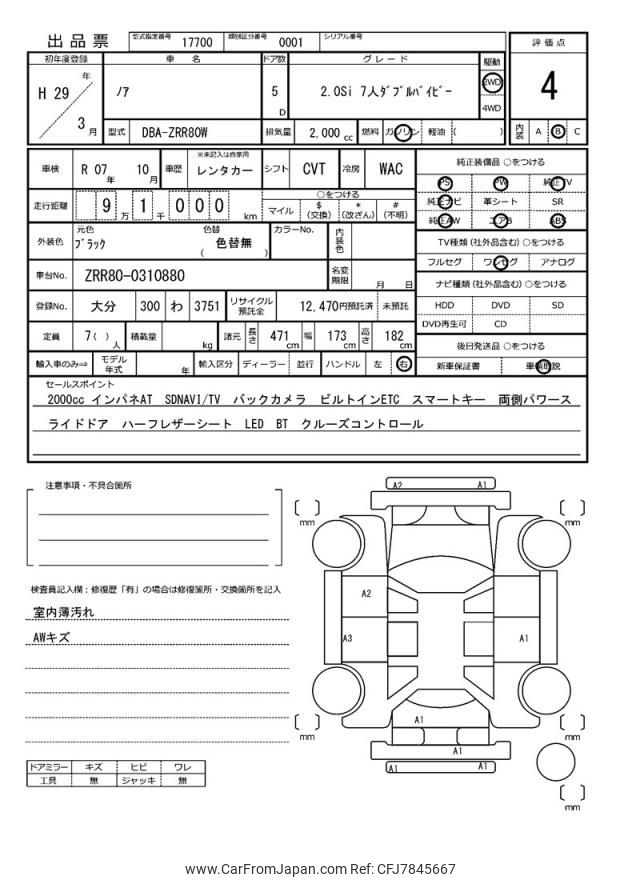 出品票 型式指定番号 17700 類別区分番号 0001 シリアル番号
評価点
4
内装 A B C
初年度登録 車名 ドア数 グレード 駆動
H 29 年 3 月
ノア
5 D
2.0Si 7人ダブルバイビー
2WD
4WD
型式 DBA-ZRR80W 排気量 2,000 cc 燃料 ガソリン 軽油 ( )
車検 R 07 年 10 月 車歴 ※未記入は自家用 レンタカー シフト CVT 冷房 WAC
走行距離 9 万 1 千 0 0 0 km ○をつける
マイル $ (交換) * (改ざん) # (不明)
外装色 元色 ブラック 色替 色替無 ( ) カラーNo. 内装色
車台No. ZRR80-0310880 名変期限 月 日
登録No. 大分 300 わ 3751 リサイクル預託金 12,470円預託済 未預託
定員 7( ) 人 積載量 kg 諸元 長さ 471 cm 幅 173 cm 高さ 182 cm
輸入車のみ⇒ モデル年式 年 輸入区分 ディーラー 並行 ハンドル 左 右
純正装備品 ○をつける
PS PW 純正TV
純正ナビ 革シート SR
純正AW エアB ABS
TV種類 (社外品含む) ○をつける
フルセグ ワンセグ アナログ
ナビ種類 (社外品含む) ○をつける
HDD DVD SD
DVD再生可 CD
後日発送品 ○をつける
新車保証書 車輌取説
セールスポイント
2000cc インパネAT SDNAVI/TV バックカメラ ビルトインETC スマートキー 両側パワース
ライドドア ハーフレザーシート LED BT クルーズコントロール
注意事項・不具合箇所
検査員記入欄：修復歴「有」の場合は修復箇所・交換箇所を記入
室内薄汚れ
AWキズ
ドアミラー キズ ヒビ ワレ
工具 無 ジャッキ 無
A2 A1
mm mm
A2
A3 A1
A1
mm mm
A1
A1 A1
mm
www.CarFromJapan.com Ref: CFJ7845667